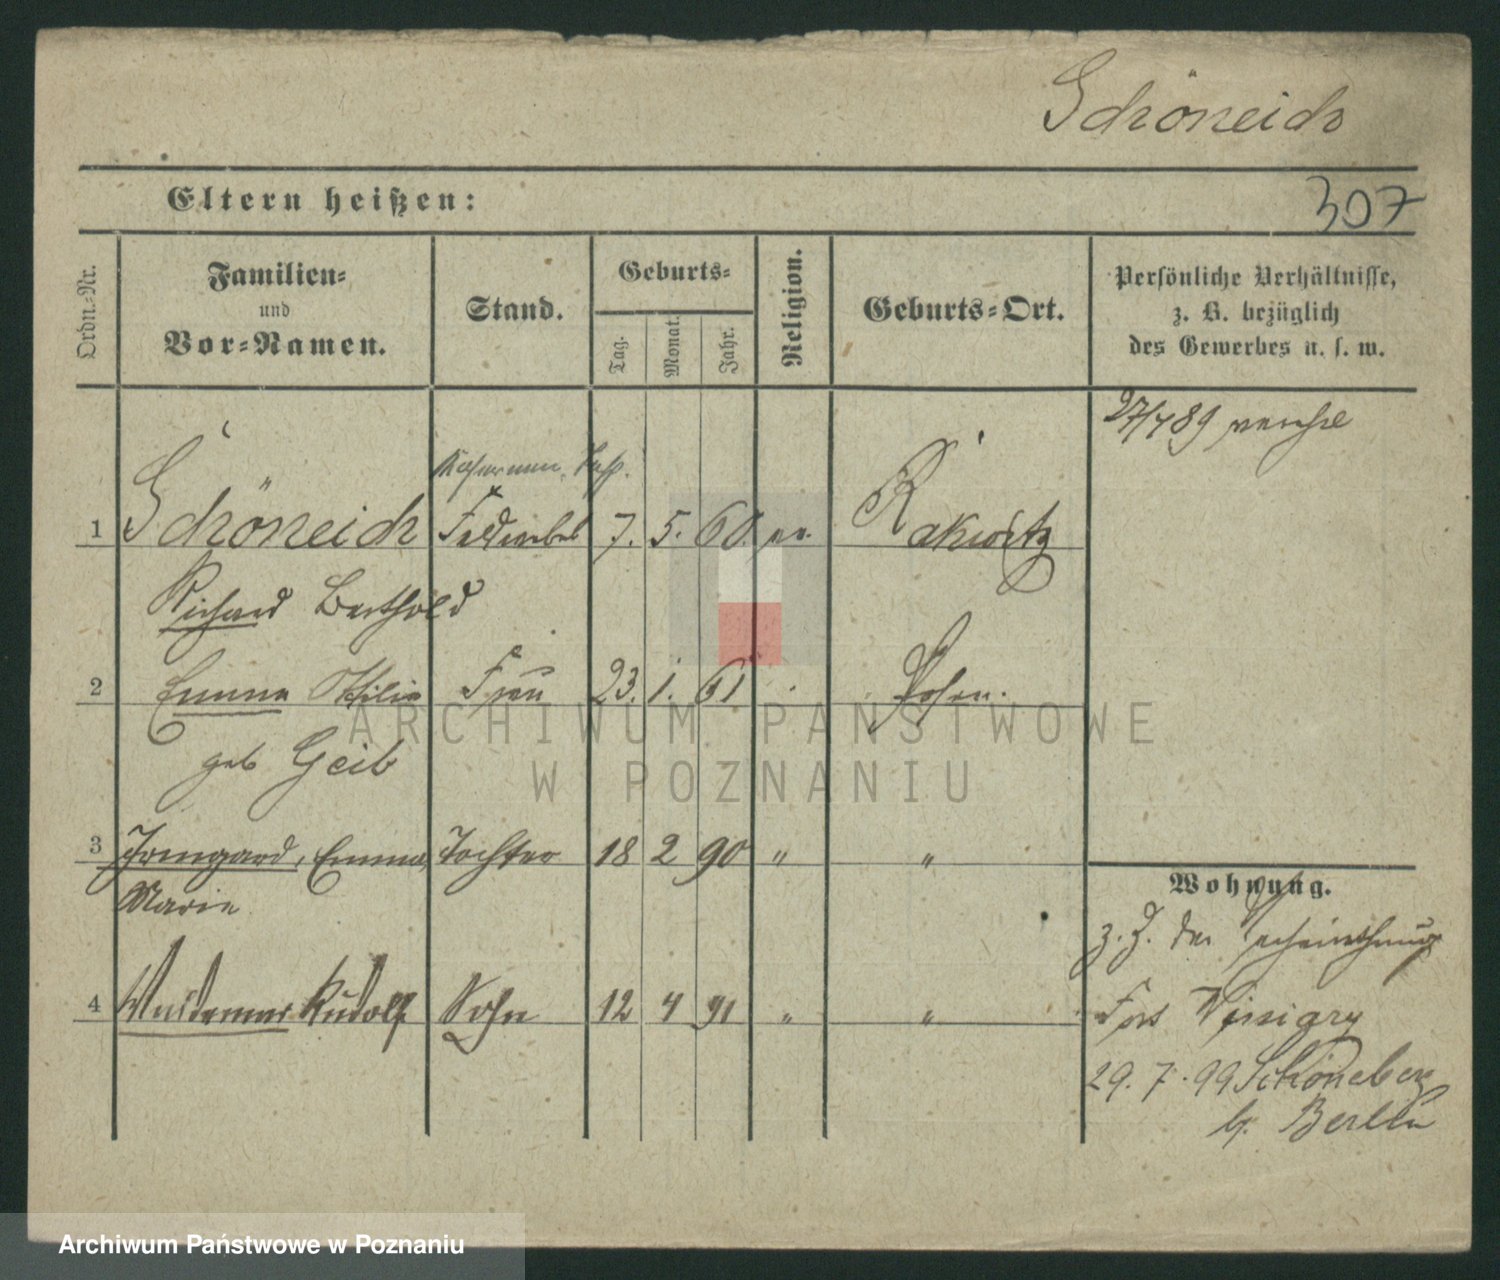 Schöneich
307
Eltern heißen:
Ordn.-Nr.
Familien- und Vor-Namen.
Stand.
Geburts-
Tag.
Monat.
Jahr.
Religion.
Geburts-Ort.
Persönliche Verhältnisse,
z. B. bezüglich
des Gewerbes u. s. w.
27/7 89
Kasernen Insp.
1 Schöneich 7. 5. 60. ev. Rakwitz
Richard Berthold
2 Emma Ottilie Frau 23. 1. 61 Posen.
geb Geib
3 Irmgard, Emma, Tochter 18 2 90 " "
Marie
4 Waldemar Rudolf Sohn 12 4 91 " "
Wohnung.
z. Z. der Verheirathung
Fort
29. 7. 99 Schöneberg
b. Berlin
ARCHIWUM PAŃSTWOWE
W POZNANIU
Archiwum Państwowe w Poznaniu